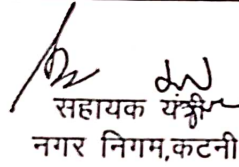 सहायक यंत्री
नगर निगम,कटनी